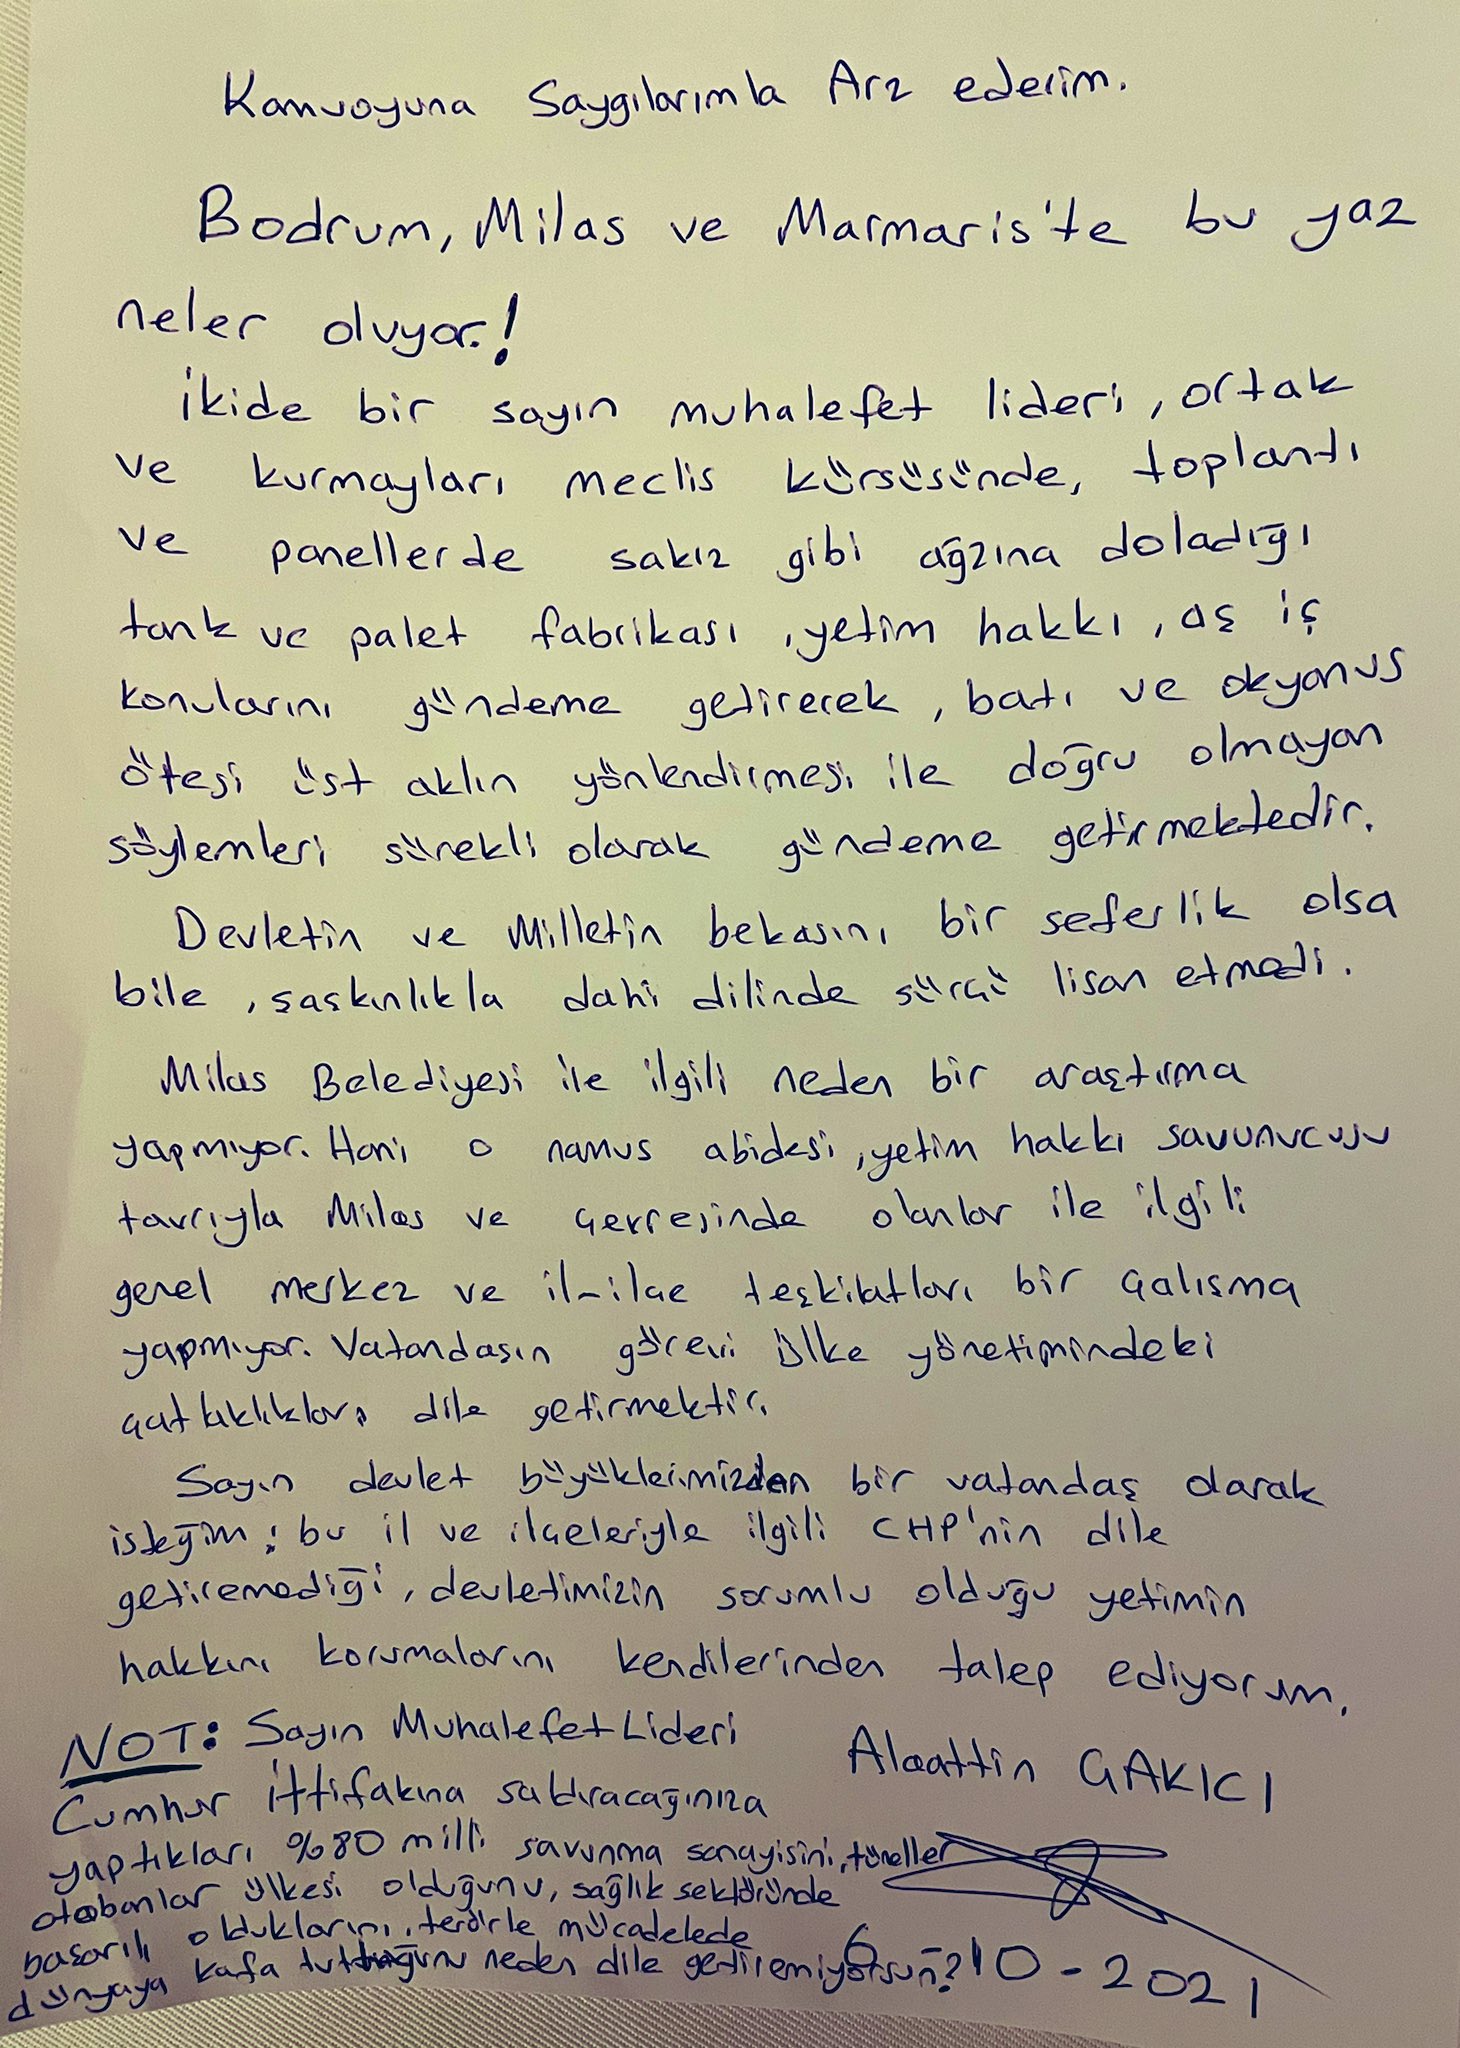 Kamuoyuna Saygılarımla Arz ederim.
Bodrum, Milas ve Marmaris'te bu yaz
neler oluyor.!
İkide bir sayın muhalefet lideri, ortak
ve kurmayları meclis kürsüsünde, toplantı
ve panellerde sakız gibi ağzına doladığı
tank ve palet fabrikası, yetim hakkı, aş iş
konularını gündeme getirerek, batı ve okyonus
ötesi üst aklın yönlendirmesi ile doğru olmayan
söylemleri sürekli olarak gündeme getirmektedir.
Devletin ve Milletin bekasını bir seferlik olsa
bile, şaşkınlıkla dahi dilinde sürçü lisan etmedi.
Milas Belediyesi ile ilgili neden bir araştırma
yapmıyor. Hani o namus abidesi, yetim hakkı savunucusu
tavrıyla Milas ve çevresinde olanlar ile ilgili
genel merkez ve il-ilçe teşkilatları bir çalışma
yapmıyor. Vatandaşın görevi ülke yönetimindeki
çatlaklıkları dile getirmektir.
Sayın devlet büyüklerimizden bir vatandaş olarak
isteğim; bu il ve ilçeleriyle ilgili CHP'nin dile
getiremediği, devletimizin sorumlu olduğu yetimin
hakkını korumalarını kendilerinden talep ediyorum.
Alaattin ÇAKICI
NOT: Sayın Muhalefet Lideri
Cumhur İttifakına saldıracağınıza
yaptıkları %80 milli savunma sanayisini, tüneller
otobanlar ülkesi olduğunu, sağlık sektöründe
başarılı olduklarını, terörle mücadelede
dünyaya kafa tuttuğunu neden dile getiremiyorsun?
6-10-2021